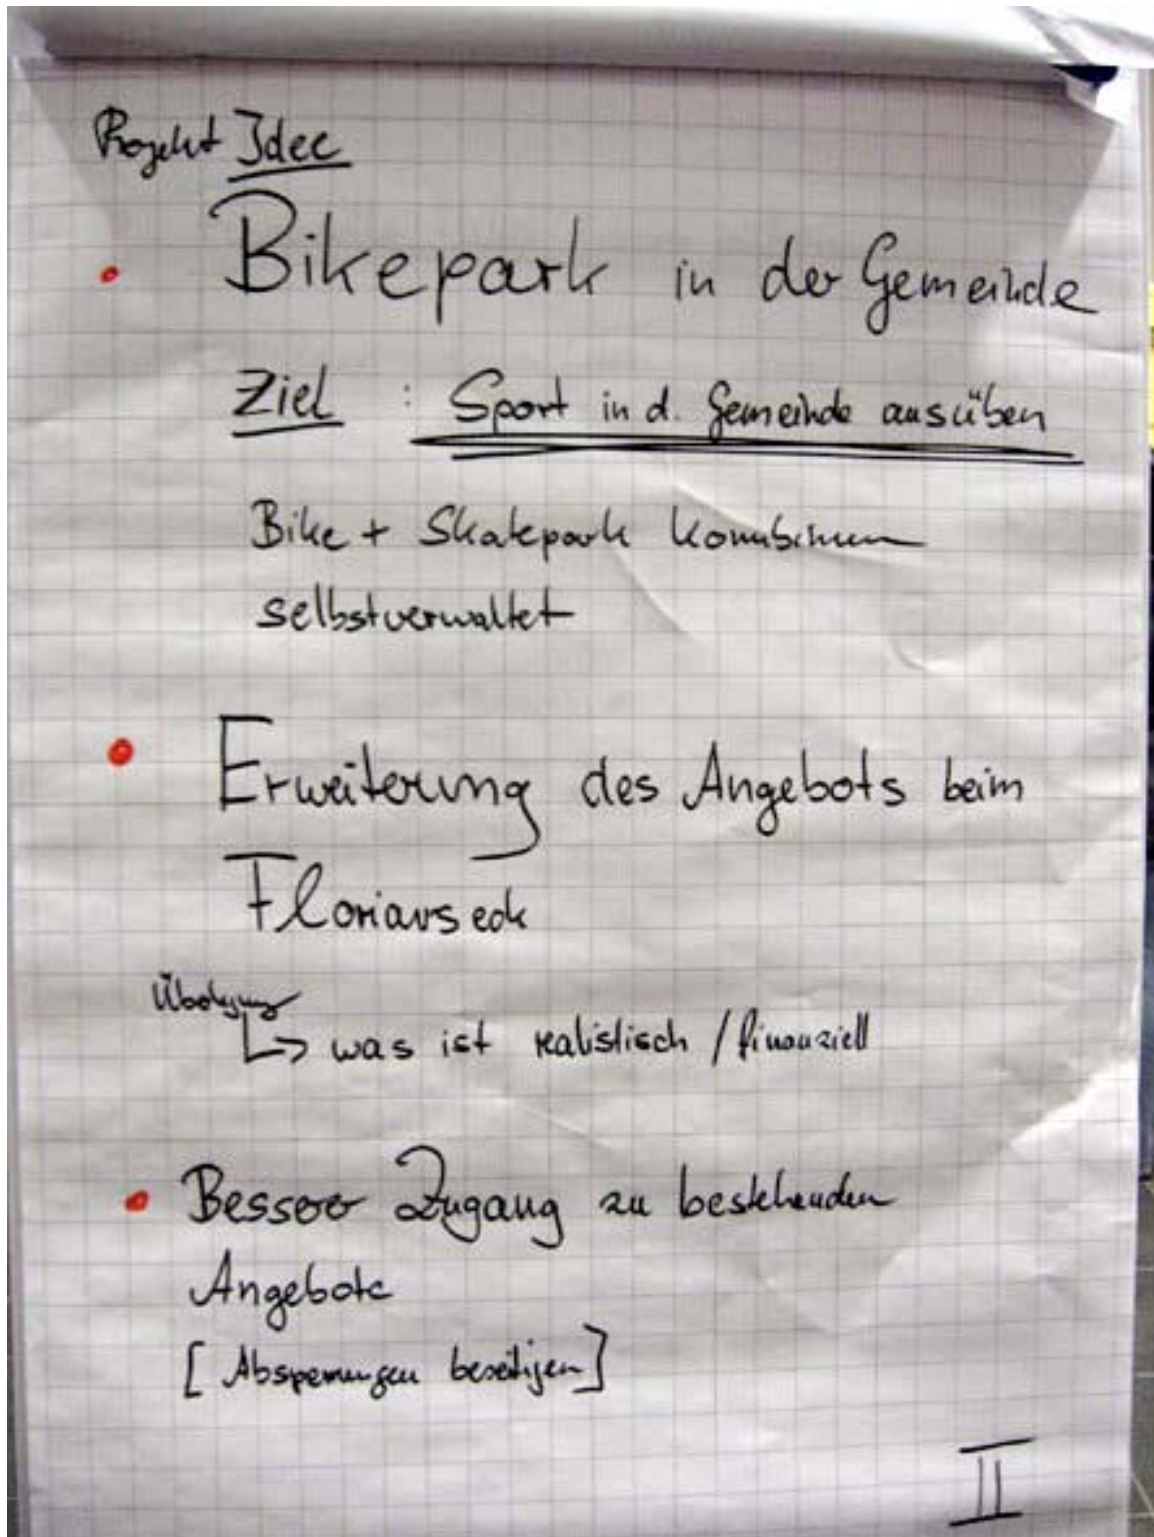 Projekt Idee
• Bikepark in der Gemeinde
Ziel : Sport in d. Gemeinde ausüben
Bike + Skatepark kombinieren
selbstverwaltet
• Erweiterung des Angebots beim
Florianseck
Überlegung
↳ was ist realistisch / finanziell
• Besserer Zugang zu bestehenden
Angebote
[Absperrungen beseitigen]
II